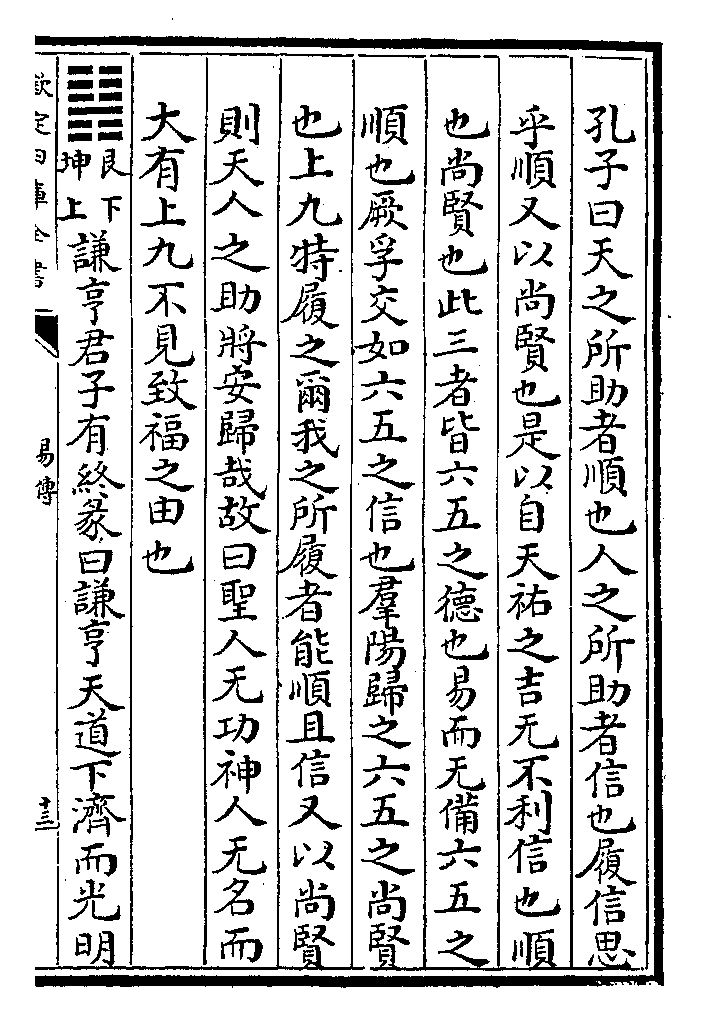 孔子曰天之所助者順也人之所助者信也履信思
乎順又以尚賢也是以自天祐之吉无不利信也順
也尚賢也此三者皆六五之德也易而无備六五之
順也厥孚交如六五之信也羣陽歸之六五之尚賢
也上九特履之爾我之所履者能順且信又以尚賢
則天人之助將安歸哉故曰聖人无功神人无名而
大有上九不見致福之由也
艮下
坤上
謙亨君子有終彖曰謙亨天道下濟而光明
欽定四庫全書
易傳
十三